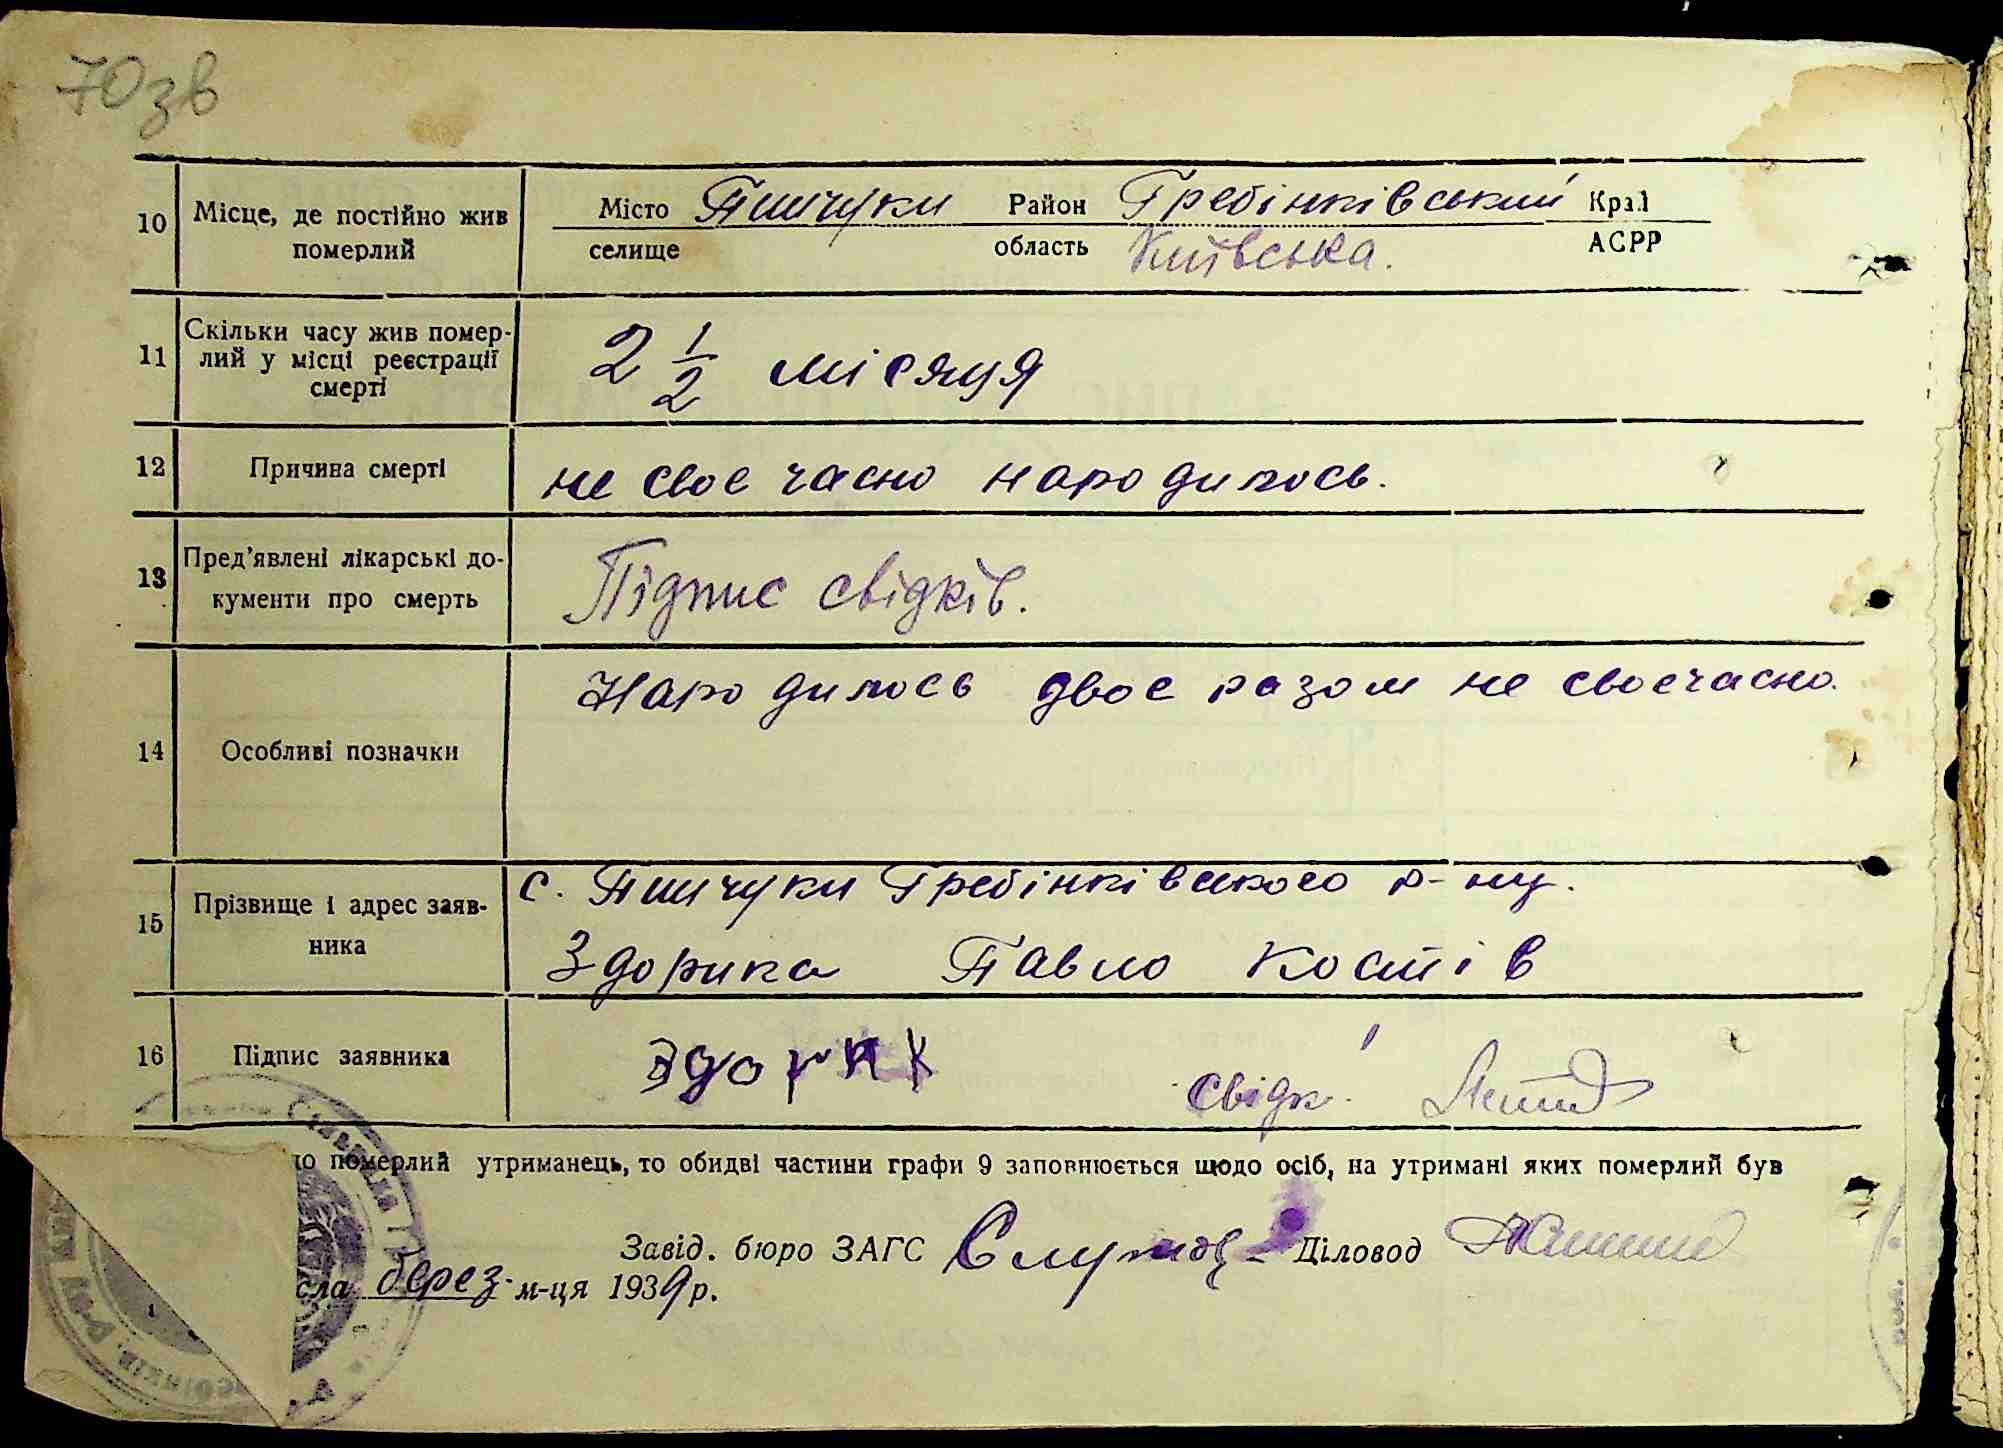 70зв
10 Місце, де постійно жив померлий
Місто Пшчуки Район Гребінківський Край
селище область Київська. АСРР
11 Скільки часу жив помер-
лий у місці реєстрації
смерті
2 1/2 місяця
12 Причина смерті не своє часно народилось.
13 Пред'явлені лікарські до-
кументи про смерть
Підпис свідків.
14 Особливі позначки
Народилось двоє разом не своєчасно.
15 Прізвище і адрес заяв-
ника
с. Пшчуки Гребінківського р-ну.
Здорика Павло Костів
16 Підпис заявника
Свідк.
померлий утриманець, то обидві частини графи 9 заповнюється щодо осіб, на утримані яких померлий був
Завід. бюро ЗАГС Діловод
сла берез. м-ця 1939 р.